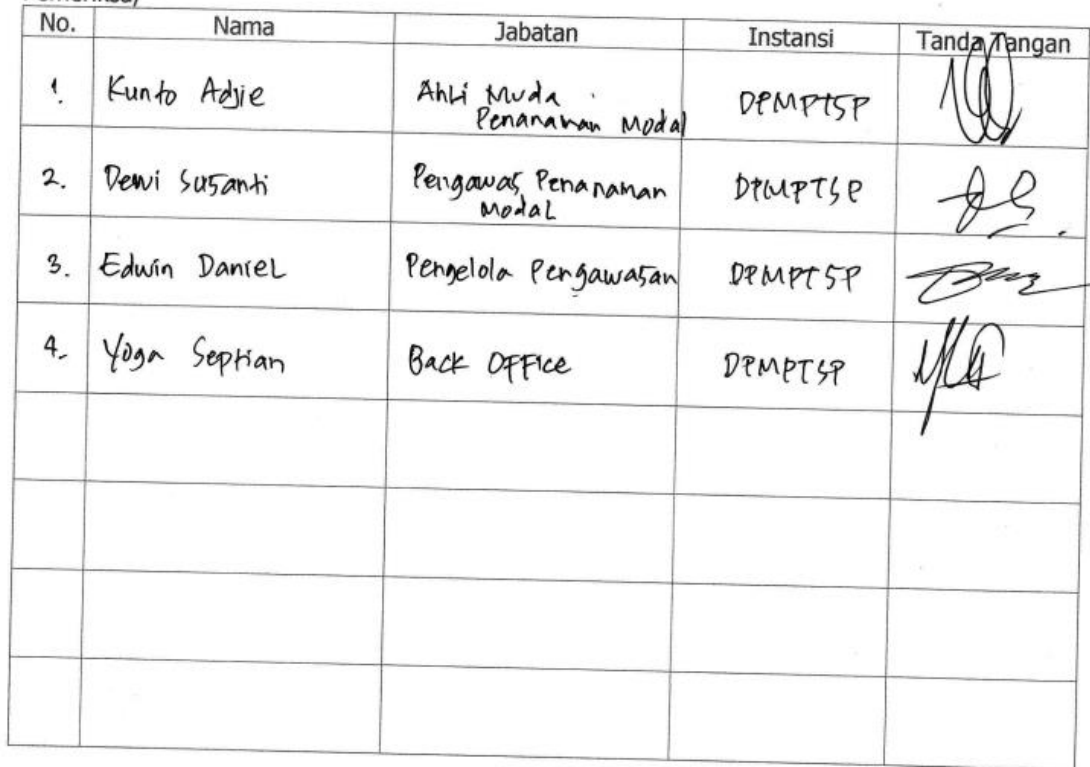 No. Nama Jabatan Instansi Tanda Tangan
1. Kunto Adjie Ahli Muda DPMPTSP
Penanaman Modal
2. Dewi Susanti Pengawas Penanaman DPMPTSP
Modal
3. Edwin Daniel Pengelola Pengawasan DPMPTSP
4. Yoga Septian Back Office DPMPTSP